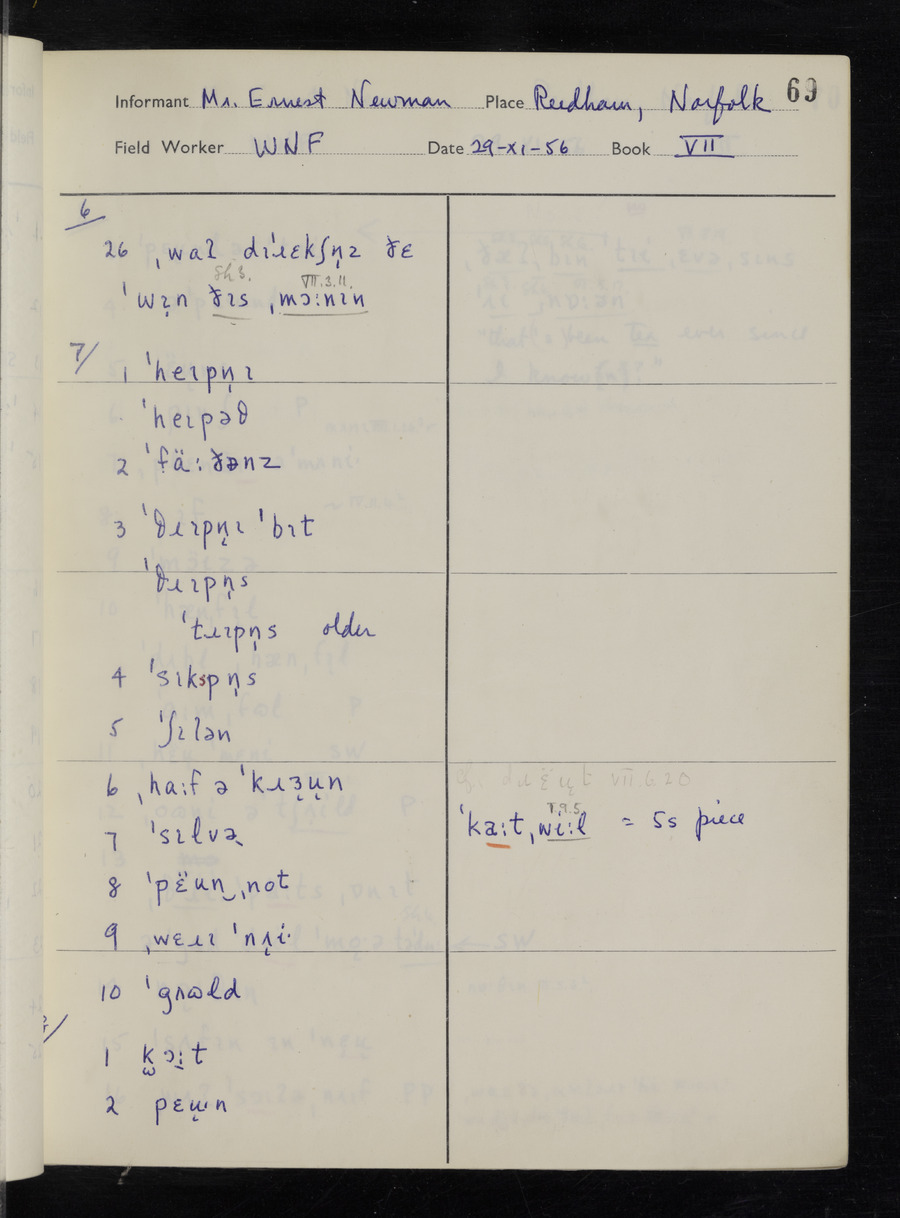 69
Informant Mr. Ernest Newman Place Reedham, Norfolk
Field Worker WNF Date 29-XI-56 Book VII
6
26 ˌwaɫ dɩˈɹɛkʃn̩z ðɛ
Sh 3. VII.3.11.
ˈwɪ̣n ðɪs ˌmɔːnɪn
7/
1 ˈheɪpn̩ɪ
ˈheɪpəθ
2 ˈfäːðənz
3 ˈθɹɪpn̩ɪ ˈbɪt
ˈθɹɪpn̩s
ˈtɹɪpn̩s older
4 ˈsɪkspn̩s
5 ˈʃɪlən
6 ˌhaːf ə ˈkɹɜ̣ʉ̣n
7 ˈsɪlvə̣
ˈkaːt ˌwiːɫ = 5s piece
V.9.5.
8 ˈpëʉn‿ˌnot
9 ˌwɛɹɪ ˈnʌ̣i·
10 ˈgʌʊɫd
1 kɔːt
2 pɛɯn